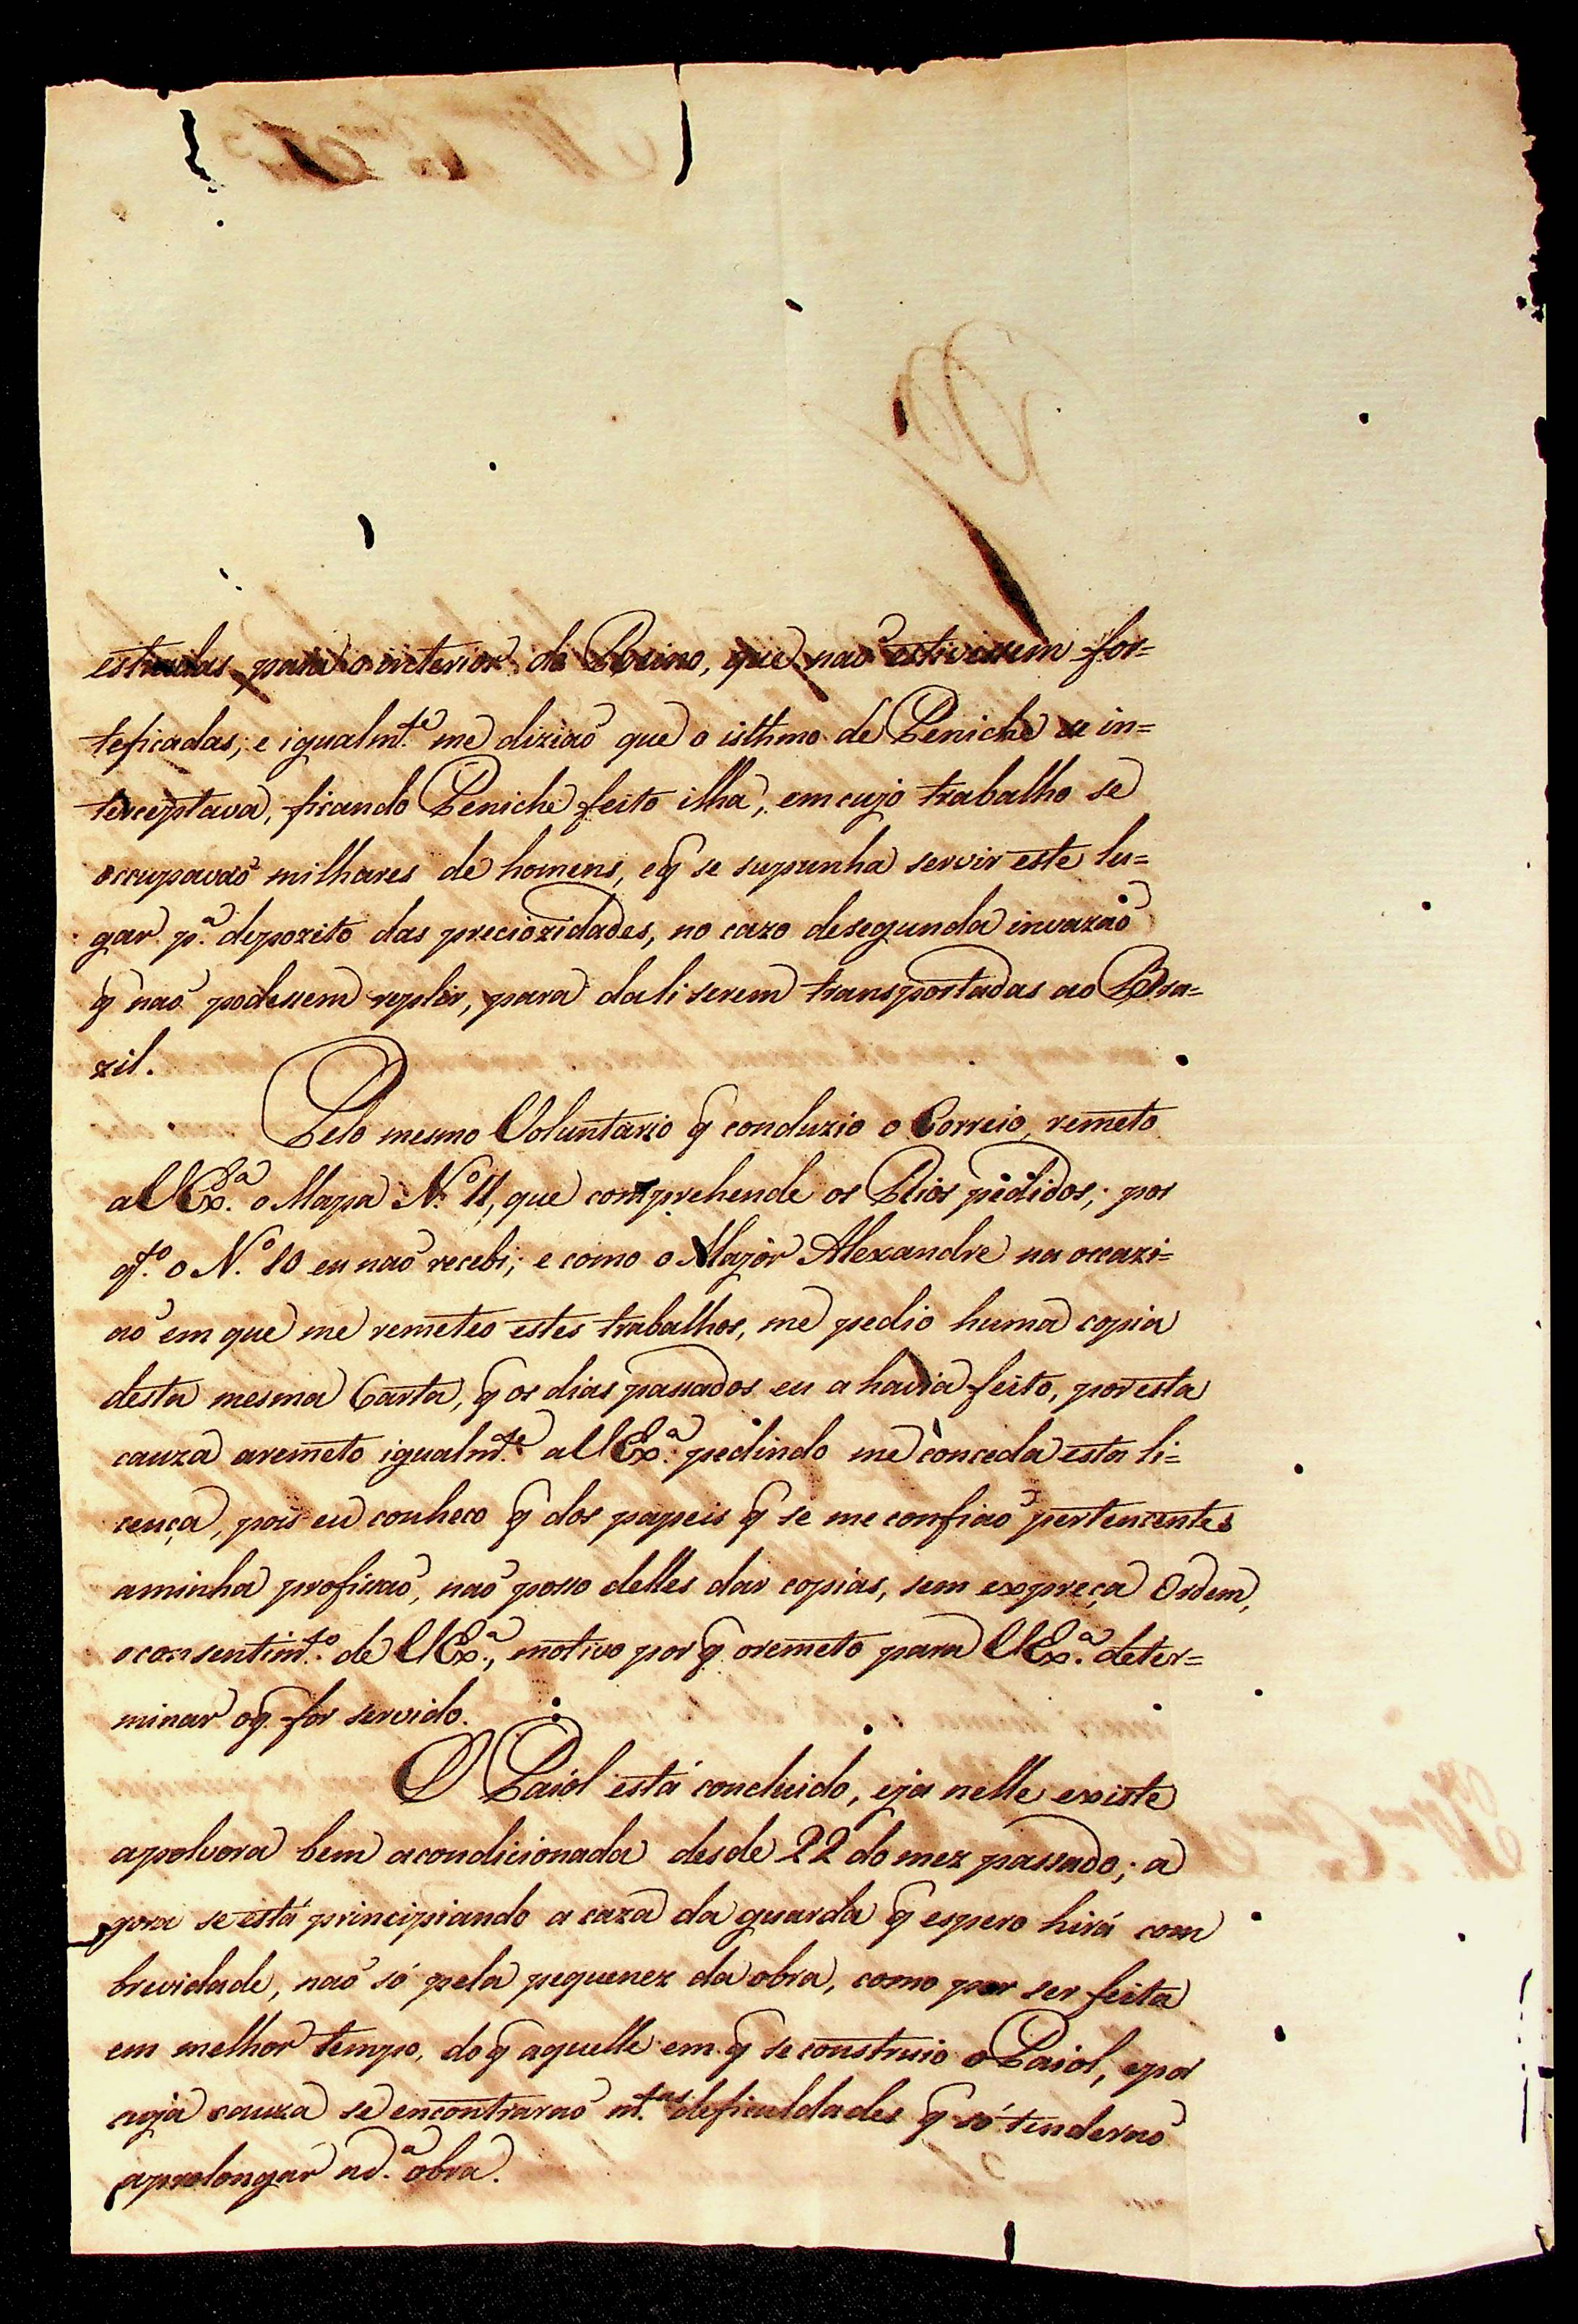 estradas para o interior do Reino, que naõ estivessem for=
teficadas; e igualm.te me diziaõ que o isthmo de Peniche se in=
terceptava, ficando Peniche feito ilha, em cujo trabalho se
occupavaõ milhares de homens, e q̃ se supunha servir este lu=
gar p.a depozito das preciozidades, no cazo de segunda invazaõ
q̃ naõ podessem repelir, para dali serem transportadas ao Bra=
zil.
Pelo mesmo Voluntario q̃ conduzio o Correio, remeto
a V Ex.a o Mapa N.o 11, que comprehende os Rios pedidos; por
q.to o N.o 10 eu naõ recebi; e como o Major Alexandre na occazi=
aõ em que me remeteo estes trabalhos, me pedio huma copia
desta mesma Carta, q̃ os dias passados eu a havia feito, por esta
cauza a remeto igualm.te a V Ex.a pedindo me conceda esta li=
cença, pois eu conheco q̃ dos papeis q̃ se me confiaõ pertencentes
a minha profissaõ, naõ posso delles dar copias, sem expreça Ordem,
e consentim.to de V Ex.a, motivo por q̃ o remeto para V Ex.a deter=
minar o q̃ for servido.
O Paiol está concluido, e ja nelle existe
a polvora bem acondicionada desde 22 do mez passado; a
gora se está principiando a caza da guarda q̃ espero hirá com
brevidade, naõ só pela pequenez da obra, como por ser feita
em melhor tempo, do q̃ aquelle em q̃ se construio o Paiol, e por
cuja cauza se encontraraõ m.tas deficuldades q̃ só tenderaõ
a prolongar a d.a obra.